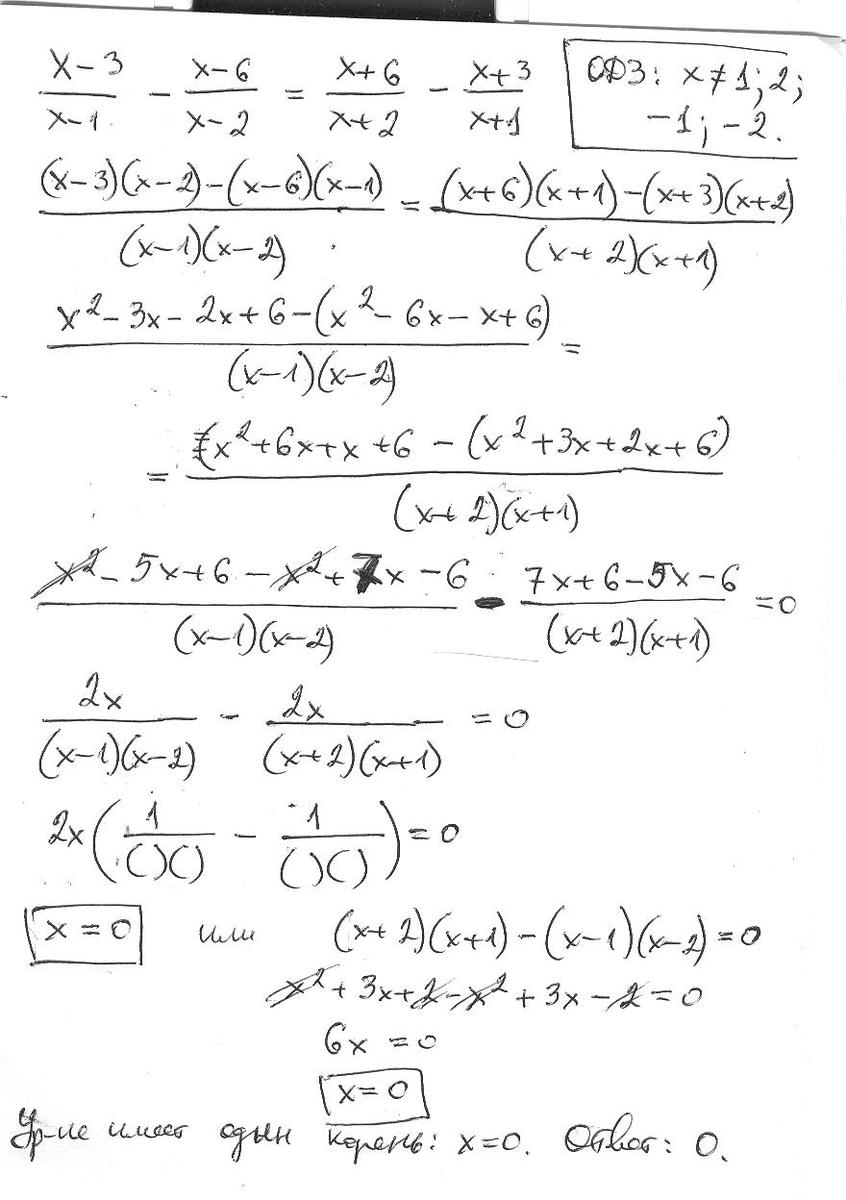 (x-3)/(x-1) - (x-6)/(x-2) = (x+6)/(x+2) - (x+3)/(x+1)
ОДЗ: x ≠ 1; 2;
-1; -2.
((x-3)(x-2)-(x-6)(x-1))/((x-1)(x-2)) = ((x+6)(x+1)-(x+3)(x+2))/((x+2)(x+1))
(x²-3x-2x+6-(x²-6x-x+6))/((x-1)(x-2)) =
= (x²+6x+x+6-(x²+3x+2x+6))/((x+2)(x+1))
(x²-5x+6-x²+7x-6)/((x-1)(x-2)) - (7x+6-5x-6)/((x+2)(x+1)) =0
2x/((x-1)(x-2)) - 2x/((x+2)(x+1)) = 0
2x(1/(()()) - 1/(()())) = 0
x = 0 или (x+2)(x+1)-(x-1)(x-2)=0
x²+3x+2-x²+3x-2=0
6x = 0
x=0
Ур-ие имеет одын корень: x=0. Ответ: 0.